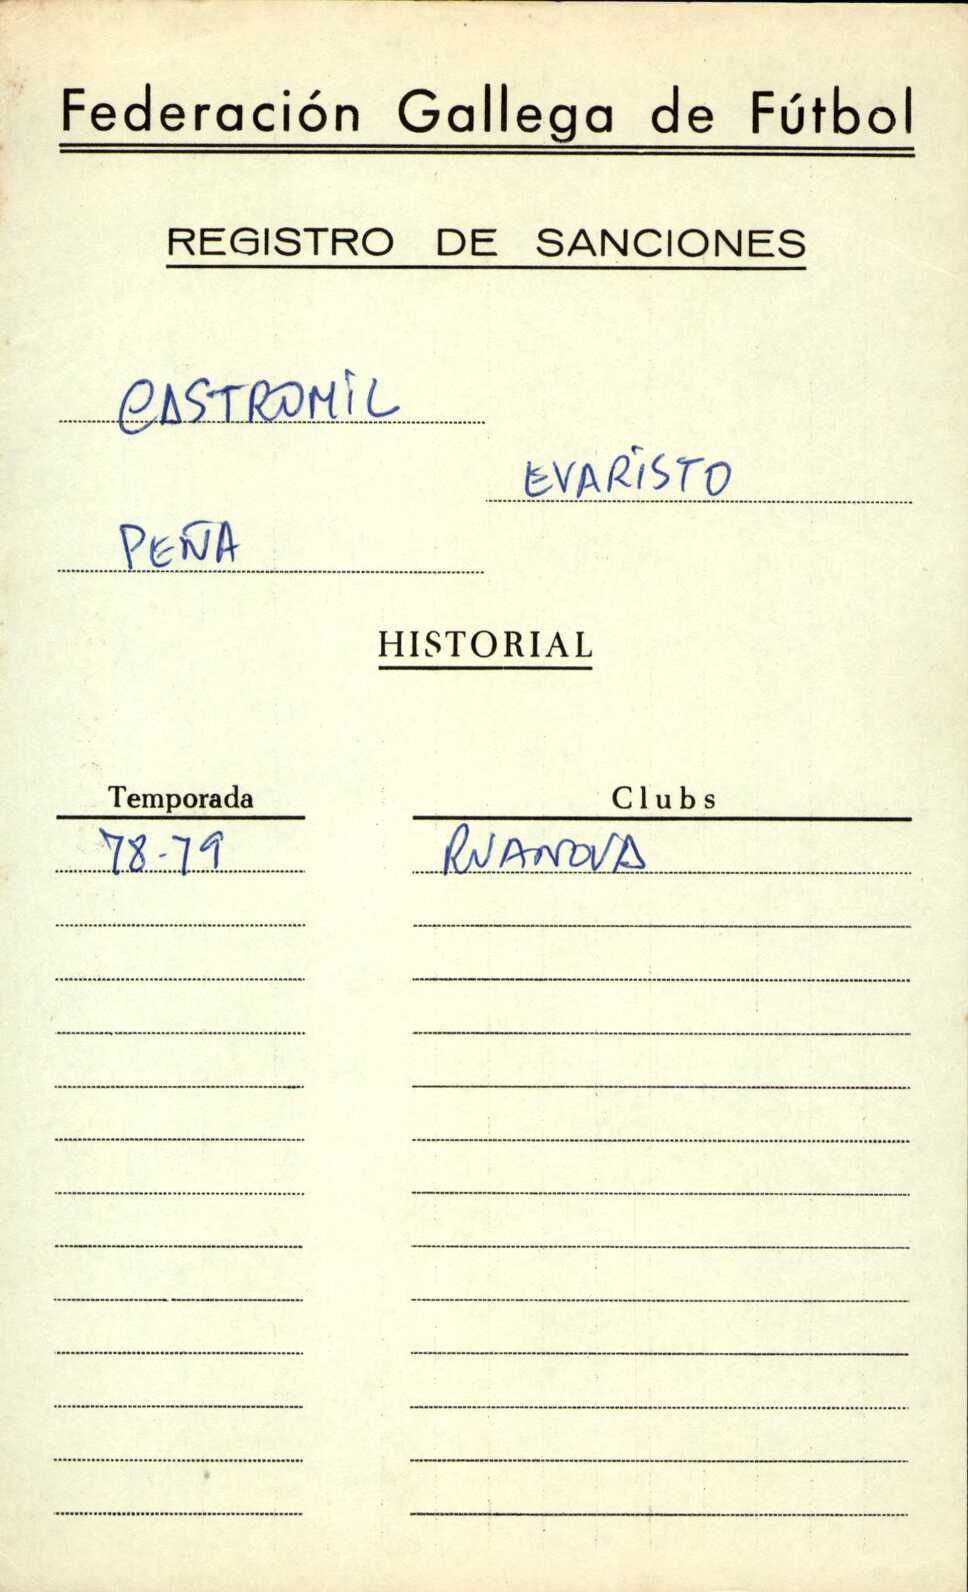 Federación Gallega de Fútbol
REGISTRO DE SANCIONES
CASTROMIL
EVARISTO
PEÑA
HISTORIAL
Temporada Clubs
78-79 RUANOVA